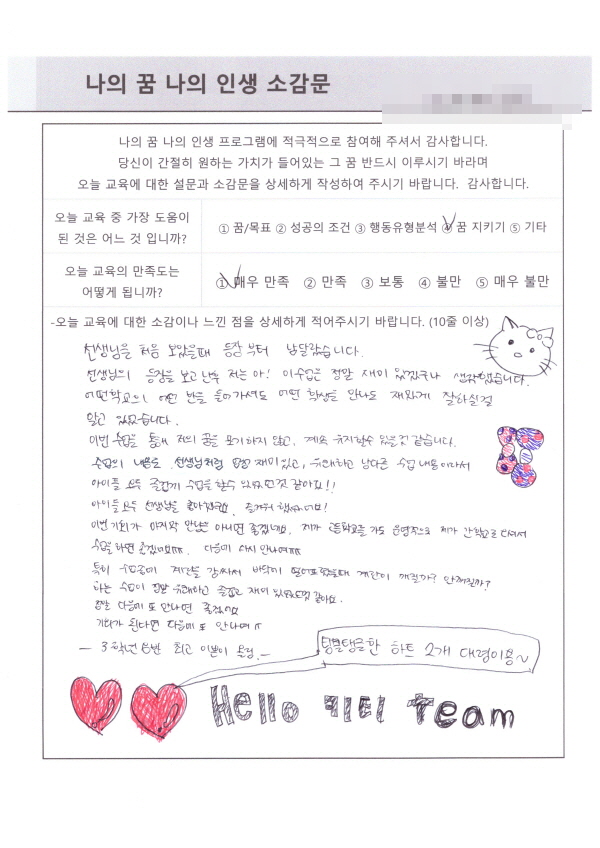 나의 꿈 나의 인생 소감문
나의 꿈 나의 인생 프로그램에 적극적으로 참여해 주셔서 감사합니다.
당신이 간절히 원하는 가치가 들어있는 그 꿈 반드시 이루시기 바라며
오늘 교육에 대한 설문과 소감문을 상세하게 작성하여 주시기 바랍니다. 감사합니다.
오늘 교육 중 가장 도움이
된 것은 어느 것 입니까?
① 꿈/목표 ② 성공의 조건 ③ 행동유형분석 ④ 꿈 지키기 ⑤ 기타
오늘 교육의 만족도는
어떻게 됩니까?
① 매우 만족 ② 만족 ③ 보통 ④ 불만 ⑤ 매우 불만
-오늘 교육에 대한 소감이나 느낀 점을 상세하게 적어주시기 바랍니다. (10줄 이상)
선생님을 처음 보았을때 등장부터 남달랐습니다.
선생님의 등장을 보고 난후 저는 아! 이수업은 정말 재미 있겠구나 생각했습니다.
어떤학교의 어떤 반을 들어가셔도 어떤 학생을 만나도 재밌게 잘하실걸
알고 있었습니다.
이번 수업을 통해 저의 꿈을 포기하지 않고, 계속 유지할수 있을것 같습니다.
수업의 내용도 선생님처럼 재미있고, 유쾌하고 남다른 수업 내용이라서
아이들 모두 즐겁게 수업을 할수 있었던것 같아요!!
아이들 모두 선생님을 좋아했고, 즐거워 했어요!
이번기회가 마지막 만남은 아니면 좋겠네요. 제가 고등학교를 가도 제가 간학교로 다셔서
수업을 하면 좋겠어요ㅠㅠ. 다음에 다시 만나여ㅠㅠ
특히 수업중에 계란을 감싸서 바닥에 떨어트렸을때 계란이 깨질까? 안깨질까?
하는 수업이 정말 유쾌하고 즐겁고 재미 있었던것 같아요.
정말 다음에 또 만나면 좋겠어요
기회가 된다면 다음에 또 만나여ㅠ
- 3학년 6반 최고 이쁜이 올림.-
탱글탱글한 하트 2개 대령이용~
Hello 키티 Team